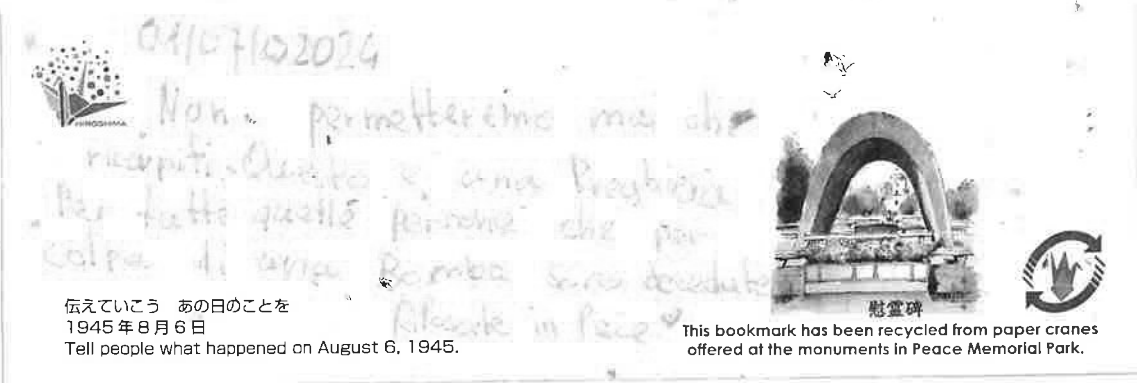 01/07/2024
HIROSHIMA
Non permetteremo mai che
ricapiti. Questa è una Preghiera
Per tutte quelle persone che per
colpa di una Bomba sono decedute
Riposate in Pace
伝えていこう あの日のことを
1945年8月6日
Tell people what happened on August 6, 1945.
慰霊碑
This bookmark has been recycled from paper cranes
offered at the monuments in Peace Memorial Park.